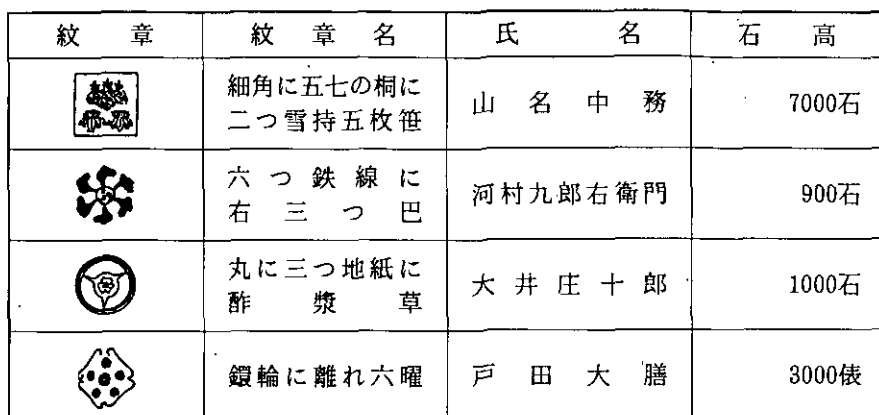 紋章 紋章名 氏名 石高
細角に五七の桐に
二つ雪持五枚笹
山名中務 7000石
六つ鉄線に
右三つ巴
河村九郎右衛門 900石
丸に三つ地紙に
酢漿草
大井庄十郎 1000石
鐶輪に離れ六曜 戸田大膳 3000俵